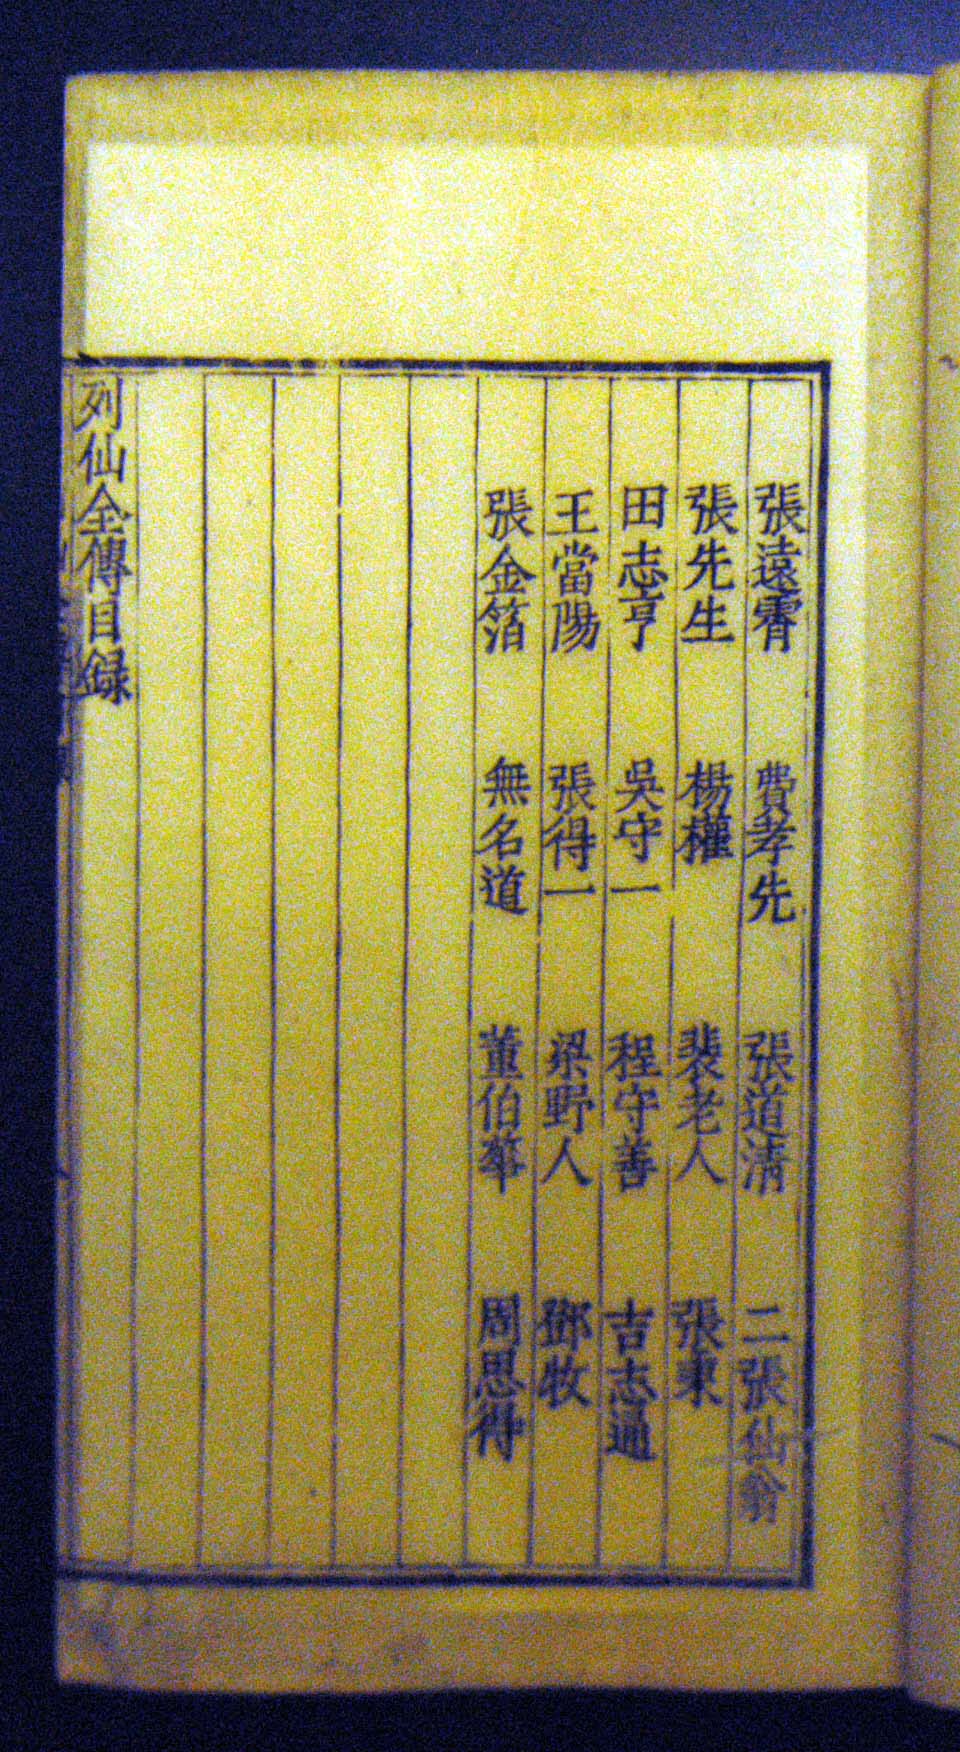 張遠霄　費孝先　張道清　二張仙翁
張先生　楊權　裴老人　張秉
田志亨　吳守一　程守善　吉志通
王當陽　張得一　梁野人　鄧牧
張金箔　無名道　董伯華　周思得
列仙全傳目錄